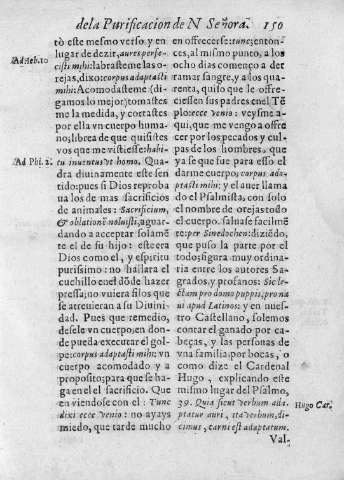 dela Purificacion de N Señora. 150
tò este mesmo verso, y en
lugar de dezir, aures perfe-
cisti mihi: aclaróme las o-
rejas, dixo: corpus adaptasti
mihi: Acomodasteme (di-
gamoslo mejor) tomastes
me la medida, y cortastes
por ella vn cuerpo huma-
no; librea de que quisistes
que me vistiesse: habi-
tu inuentus vt homo. Qua-
dra diuinamente este sen
tido: pues si Dios reproba
ua los de mas sacrificios
de animales: Sacrificium,
& oblationẽ noluisti, aguar-
dando a acceptar solamẽ
te el de su hijo: este era
Dios como el, y espiritu
purissimo: no hallara el
cuchillo en el dõde hazer
pressa, no vuiera filos que
se atreuieran a su Diuini-
dad. Pues que remedio,
desele vn cuerpo, en don-
de pueda executar el gol-
pe: corpus adaptasti mihi: vn
cuerpo acomodado y a
proposito; para que se ha-
ga en el el sacrificio. Que
en viendose con el: Tunc
dixi ecce venio: no ayays
miedo, que tarde mucho
Ad Heb. 10
Ad Phi. 2.
en offrecerse: tunc; enton-
ces, al mismo punto, a los
ocho dias començo a der
ramar sangre, y a los qua-
renta, quiso que le offre-
ciessen sus padres en el Tẽ
plo: ecce venio: veysme a-
qui, que me vengo a offre
cer por los pecados y cul-
pas de los hombres, que
ya se que fue para esso el
darme cuerpo; corpus ada-
ptasti mihi; y el auer llama
do el Psalmista, con solo
el nombre de orejas todo
el cuerpo, saluase facilmẽ
te: per Sinedochen: diziẽdo,
que puso la parte por el
todo; figura muy ordina-
ria entre los autores Sa-
grados, y profanos: Sic le-
ctam pro domo puppis, pro na
ui apud Latinos: y en nues-
tro Castellano, solemos
contar el ganado por ca-
beças, y las personas de
vna familia por bocas, o
como dize el Cardenal
Hugo, explicando este
mismo lugar del Psalmo,
39. Quia sicut verbum ada-
ptatur auri, ita verbum, di-
cimus, carni est adaptatum.
Hugo Car.
Val-